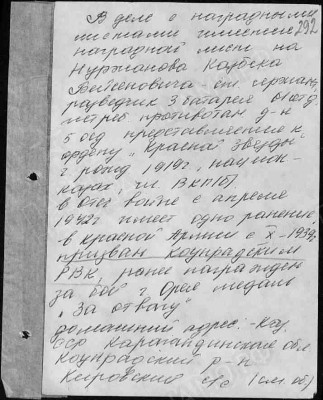 292
В деле с наградными
листами имеется
наградной лист на
Нуржанова Каубека
Бейсеновича - ст. сержант,
разведчик 3 батареи
истреб. противотан. д-н
5 осд представление к
ордену "Красной Звезды"
г. рожд 1919г., национ-
казах, чл. ВКП(б),
в Отеч войне с апреля
1942г имеет одно ранение,
в Красной Армии с X-1939,
призван Коунрадским
РВК, ранее награжден
за бой г. Орел медаль
"За отвагу"
домашний адрес: Каз.
ССР Карагандинская обл
Коунрадский р-н
Кировский с/с (см. об)